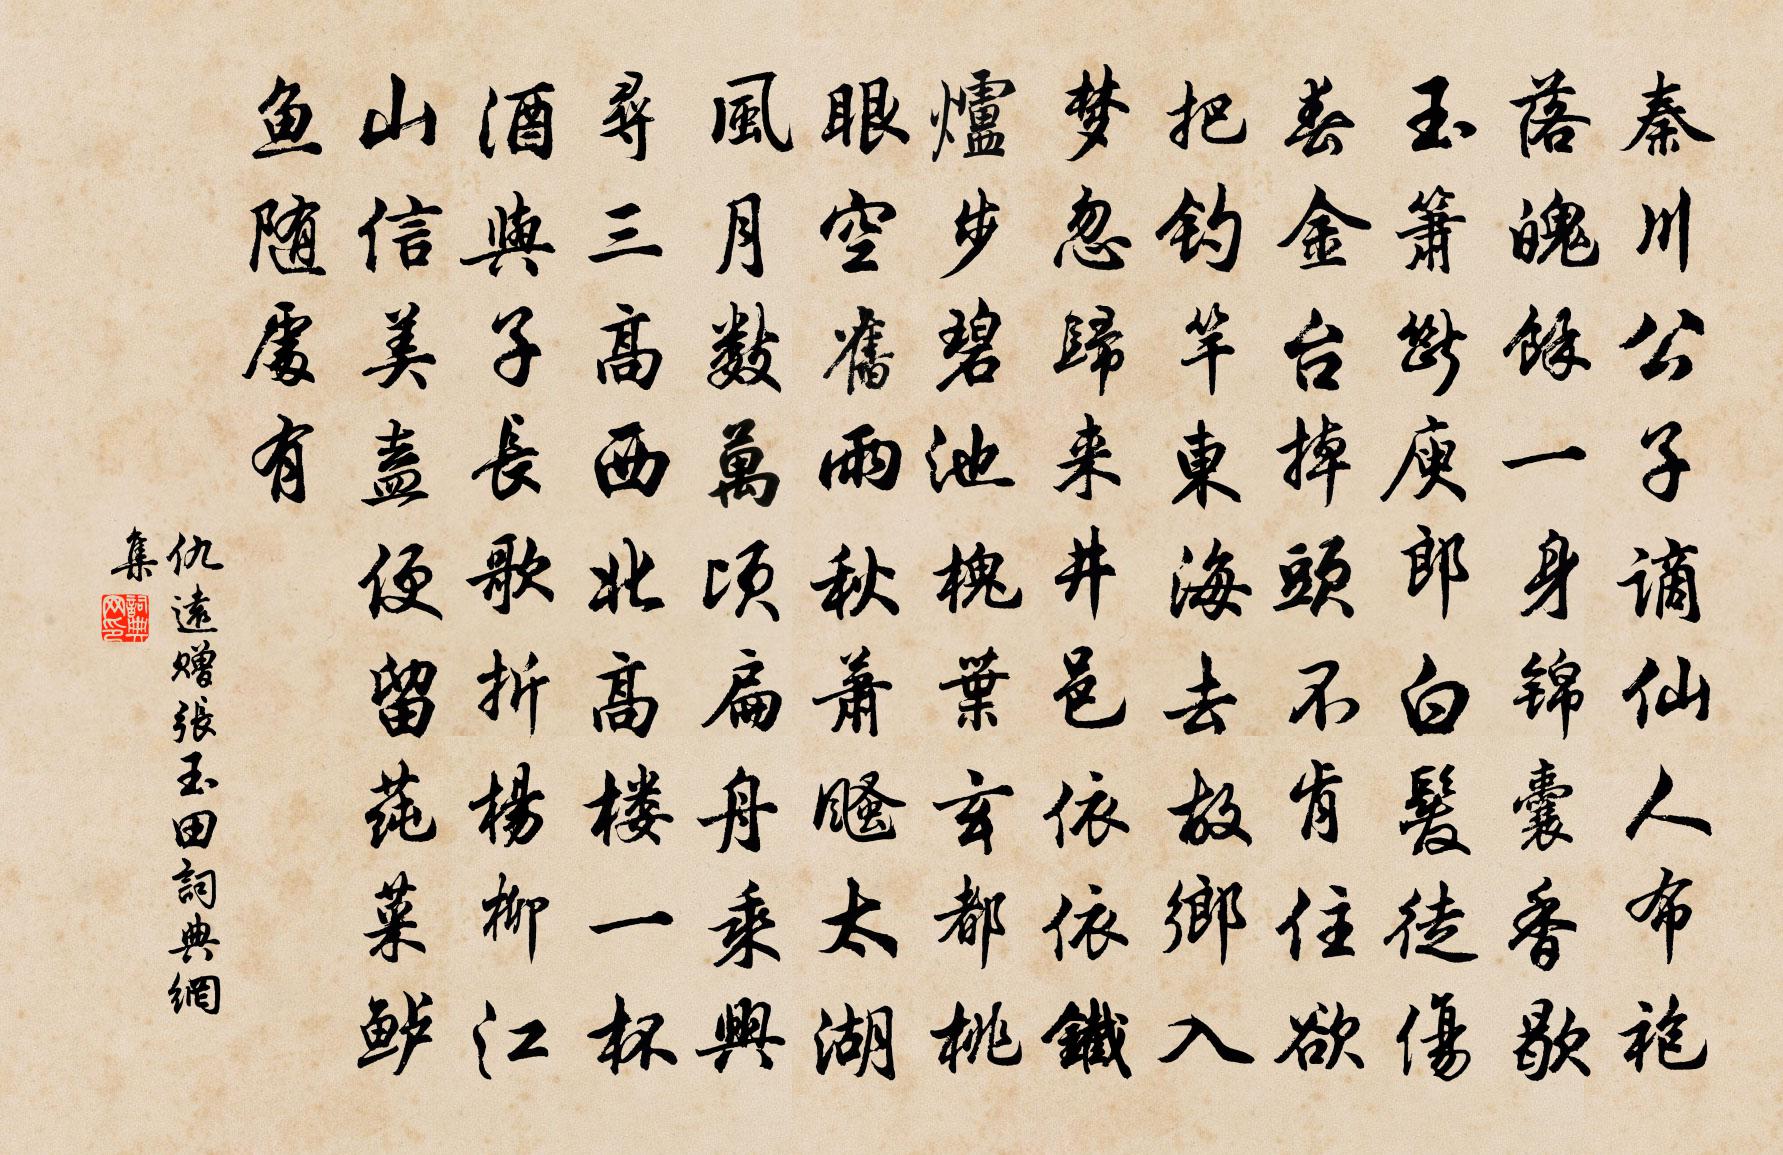 秦川公子谪仙人布袍
落魄餘一身锦囊香歇
玉箫斷庾郎白髮徒傷
春金台掉頭不肯住欲
把钓竿東海去故鄉入
梦忽歸来井邑依依鐵
爐步碧池槐葉玄都桃
眼空舊雨秋萧騷太湖
風月数萬頃扁舟乘興
尋三高西北高楼一杯
酒與子長歌折楊柳江
山信美盍便留莼菜鲈
鱼随處有
仇遠赠張玉田詞典網
集
詞典网印